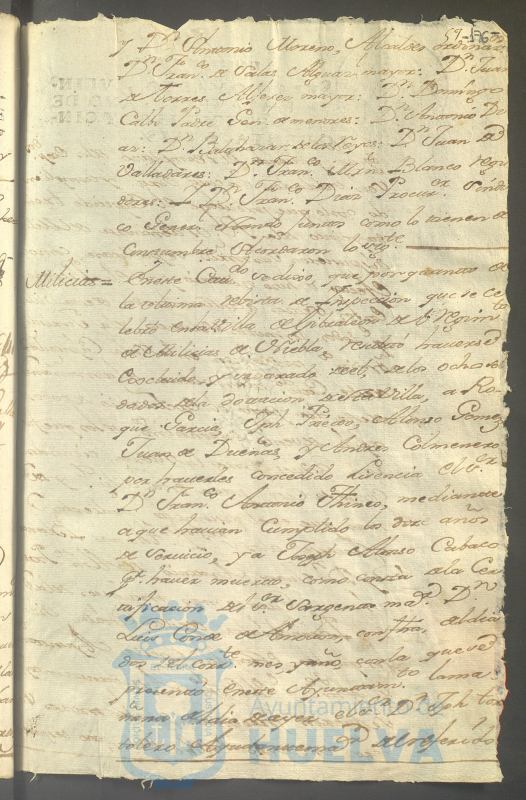 57 -176-
y Dn. Antonio Moreno, Alcaldes ordinarios
Dn. Franco. de Salas Alguacil mayor: Dn. Juan
de Torres Alferez mayor: Dn. Domingo
Calbo Padre Gen. de menores: Dn. Antonio De
: Dn. Balthasar de los Reyes: Dn. Juan de
Valladares: Dn. Franco. Mrn. Blanco regi
dores: Y Dn. Franco. Diaz Procur.or Sindi
co Gener. estando juntos como lo tienen de
Constumbre Acordaron lo sigte.
Milicias = En este Cavdo. se dijo, que por quanto de
la ultima rebista de Inspeccion que se ce
lebro en la Villa de Gibraleon de el regimto.
de Milicias de Niebla, resultó haverse
Escluido, y separado de el, de los ocho sol
dados de la dotacion de esta Villa, a Ro
que Garcia, Jph Prieto, Alonso Gomez,
Juan de Dueñas y Andres Colmenero
por haverles concedido Licencia el Sr.
Dn. Franco. Antonio Thineo, mediante
a que havian Cumplido los diez años
de Servicio, y a Joseph Alonso Cabaco
pr. haver muerto, como consta de la Cer
tificacion de el Sr. Sargento mar. Dn.
Luis Conde de con fha. del dia
dos del corrte. mes y año, con la que se
presentó en este Ayuntamto. la ma
ñana del dia de ayer el Sr. Dn. Jph Tor
tolero Ayudante mar. del referido
Ayuntamiento de
HUELVA